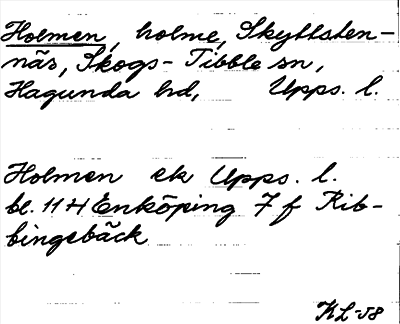 Holmen, holme, Skyttsten-
näs, Skogs-Tibble sn,
Hagunda hd, Upps. l.
Holmen ek Upps. l.
bl. 11 H Enköping 7 f Rib-
bingebäck
KL-58